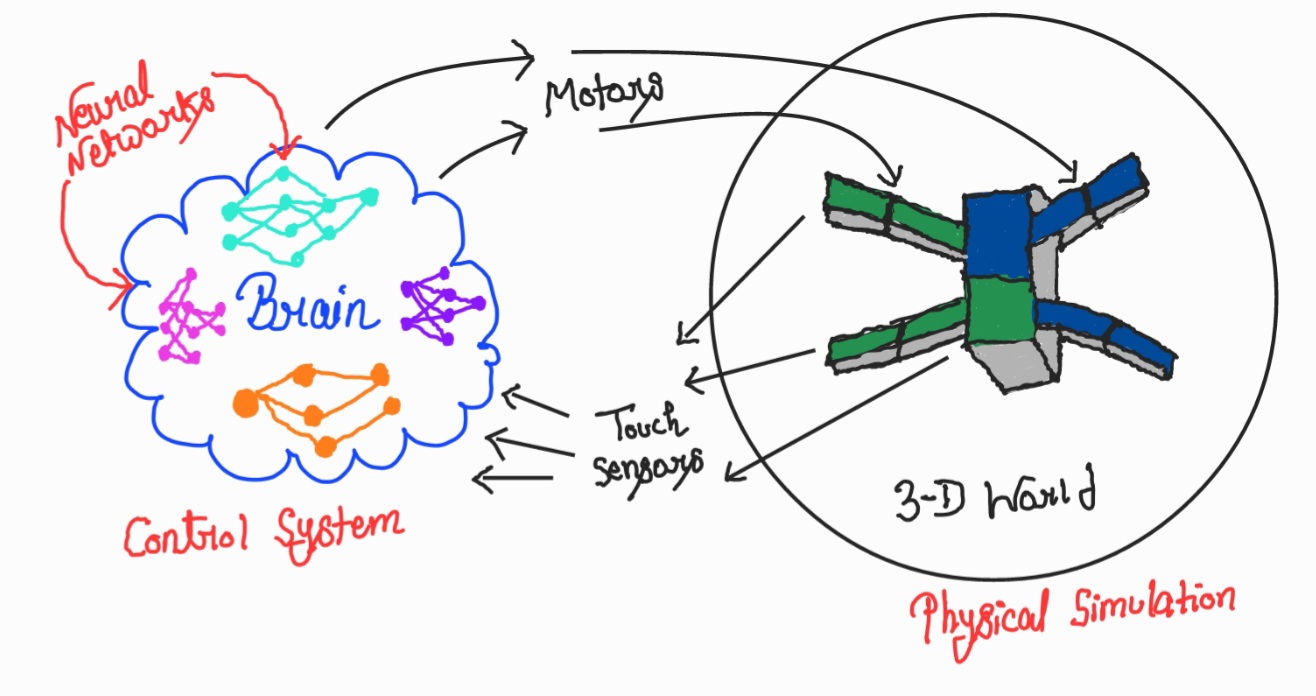 Neural
Networks
Motors
Brain
Touch
sensors
3-D World
Control System
Physical Simulation